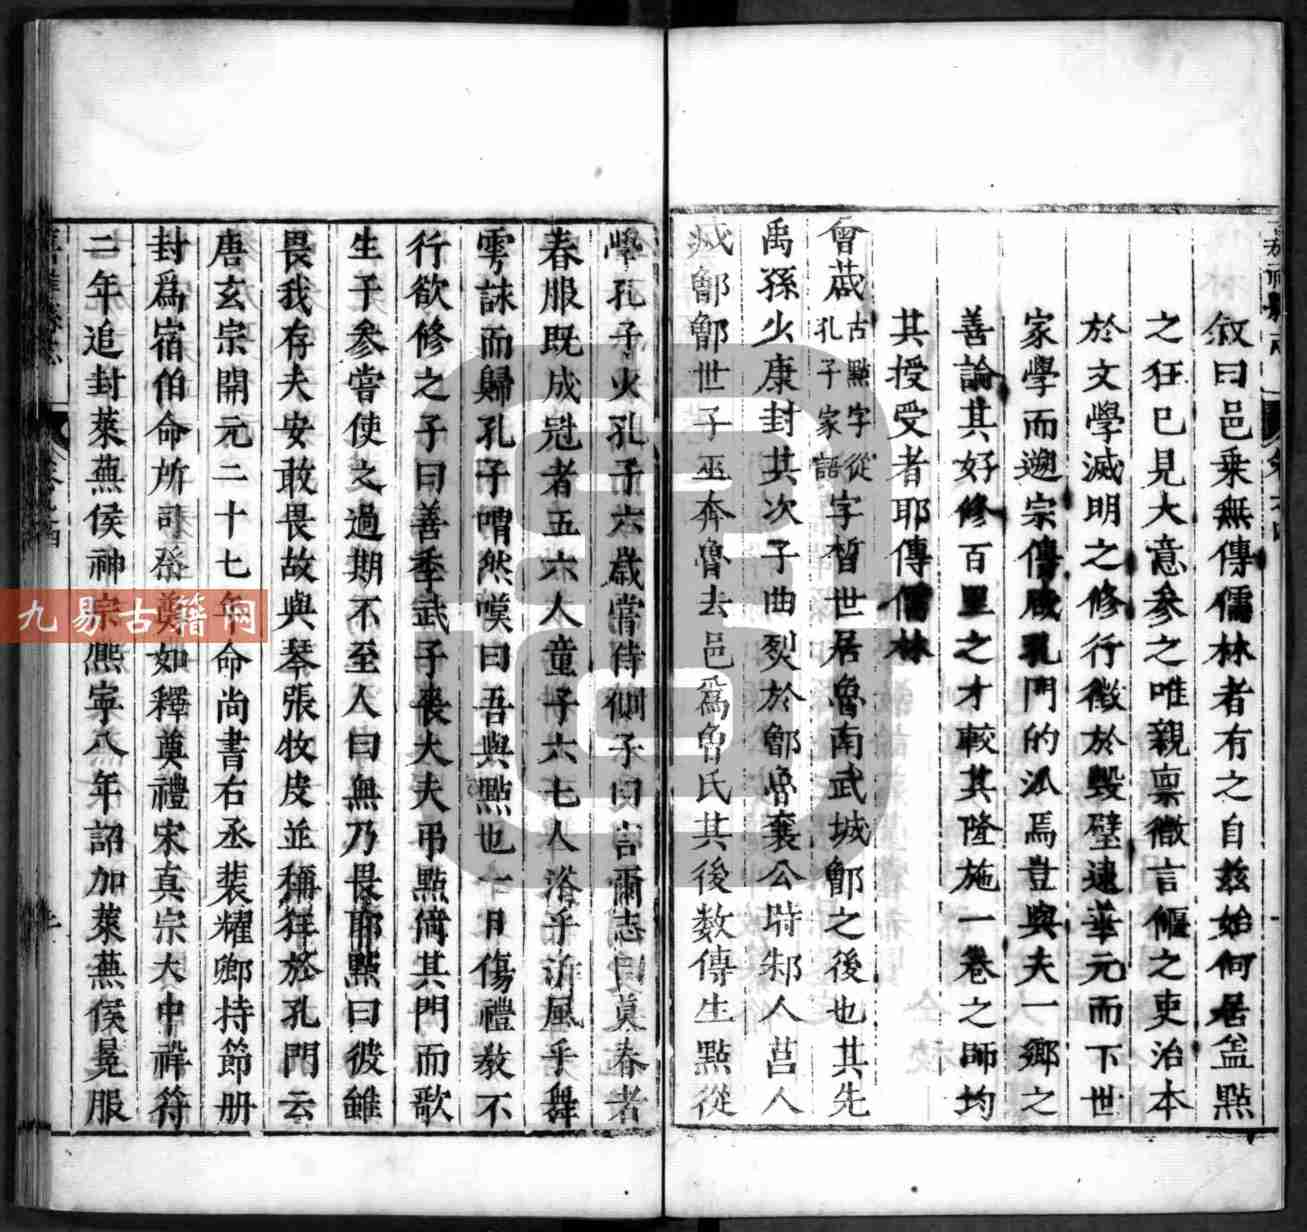 敘曰邑乘無傳儒林者有之自兹始何居益點
之狂已見大意參之唯親稟微言偃之吏治本
於文學滅明之修行徵於毀璧逮華元而下世
家學而遡宗傳成孔門的𣲖焉豈與夫一鄉之
善論其好修百里之才較其隆施一卷之師均
其授受者耶傳儒林
曾蒧古點字從孔子家語字晳世居魯南武城鄫之後也其先
禹孫少康封其次子曲烈於鄫魯襄公時邾人莒人
滅鄫鄫世子巫奔魯去邑爲曾氏其後数傳生點從
學孔子少孔子六歲嘗侍側子曰言爾志曰莫春者
春服既成冠者五六人童子六七人浴乎沂風乎舞
雩詠而歸孔子喟然嘆曰吾與點也一日傷禮教不
行欲修之子曰善季武子喪大夫弔點倚其門而歌
生子參嘗使之過期不至人曰無乃畏耶點曰彼雖
畏我存夫安敢畏故與琴張牧皮並稱狂於孔門云
唐玄宗開元二十七年命尚書右丞裴耀卿持節册
封爲宿伯命所司祭奠如釋奠禮宋真宗大中祥符
二年追封萊蕪侯神宗熈寧八年詔加萊蕪侯冕服
卷之四
九易古籍网